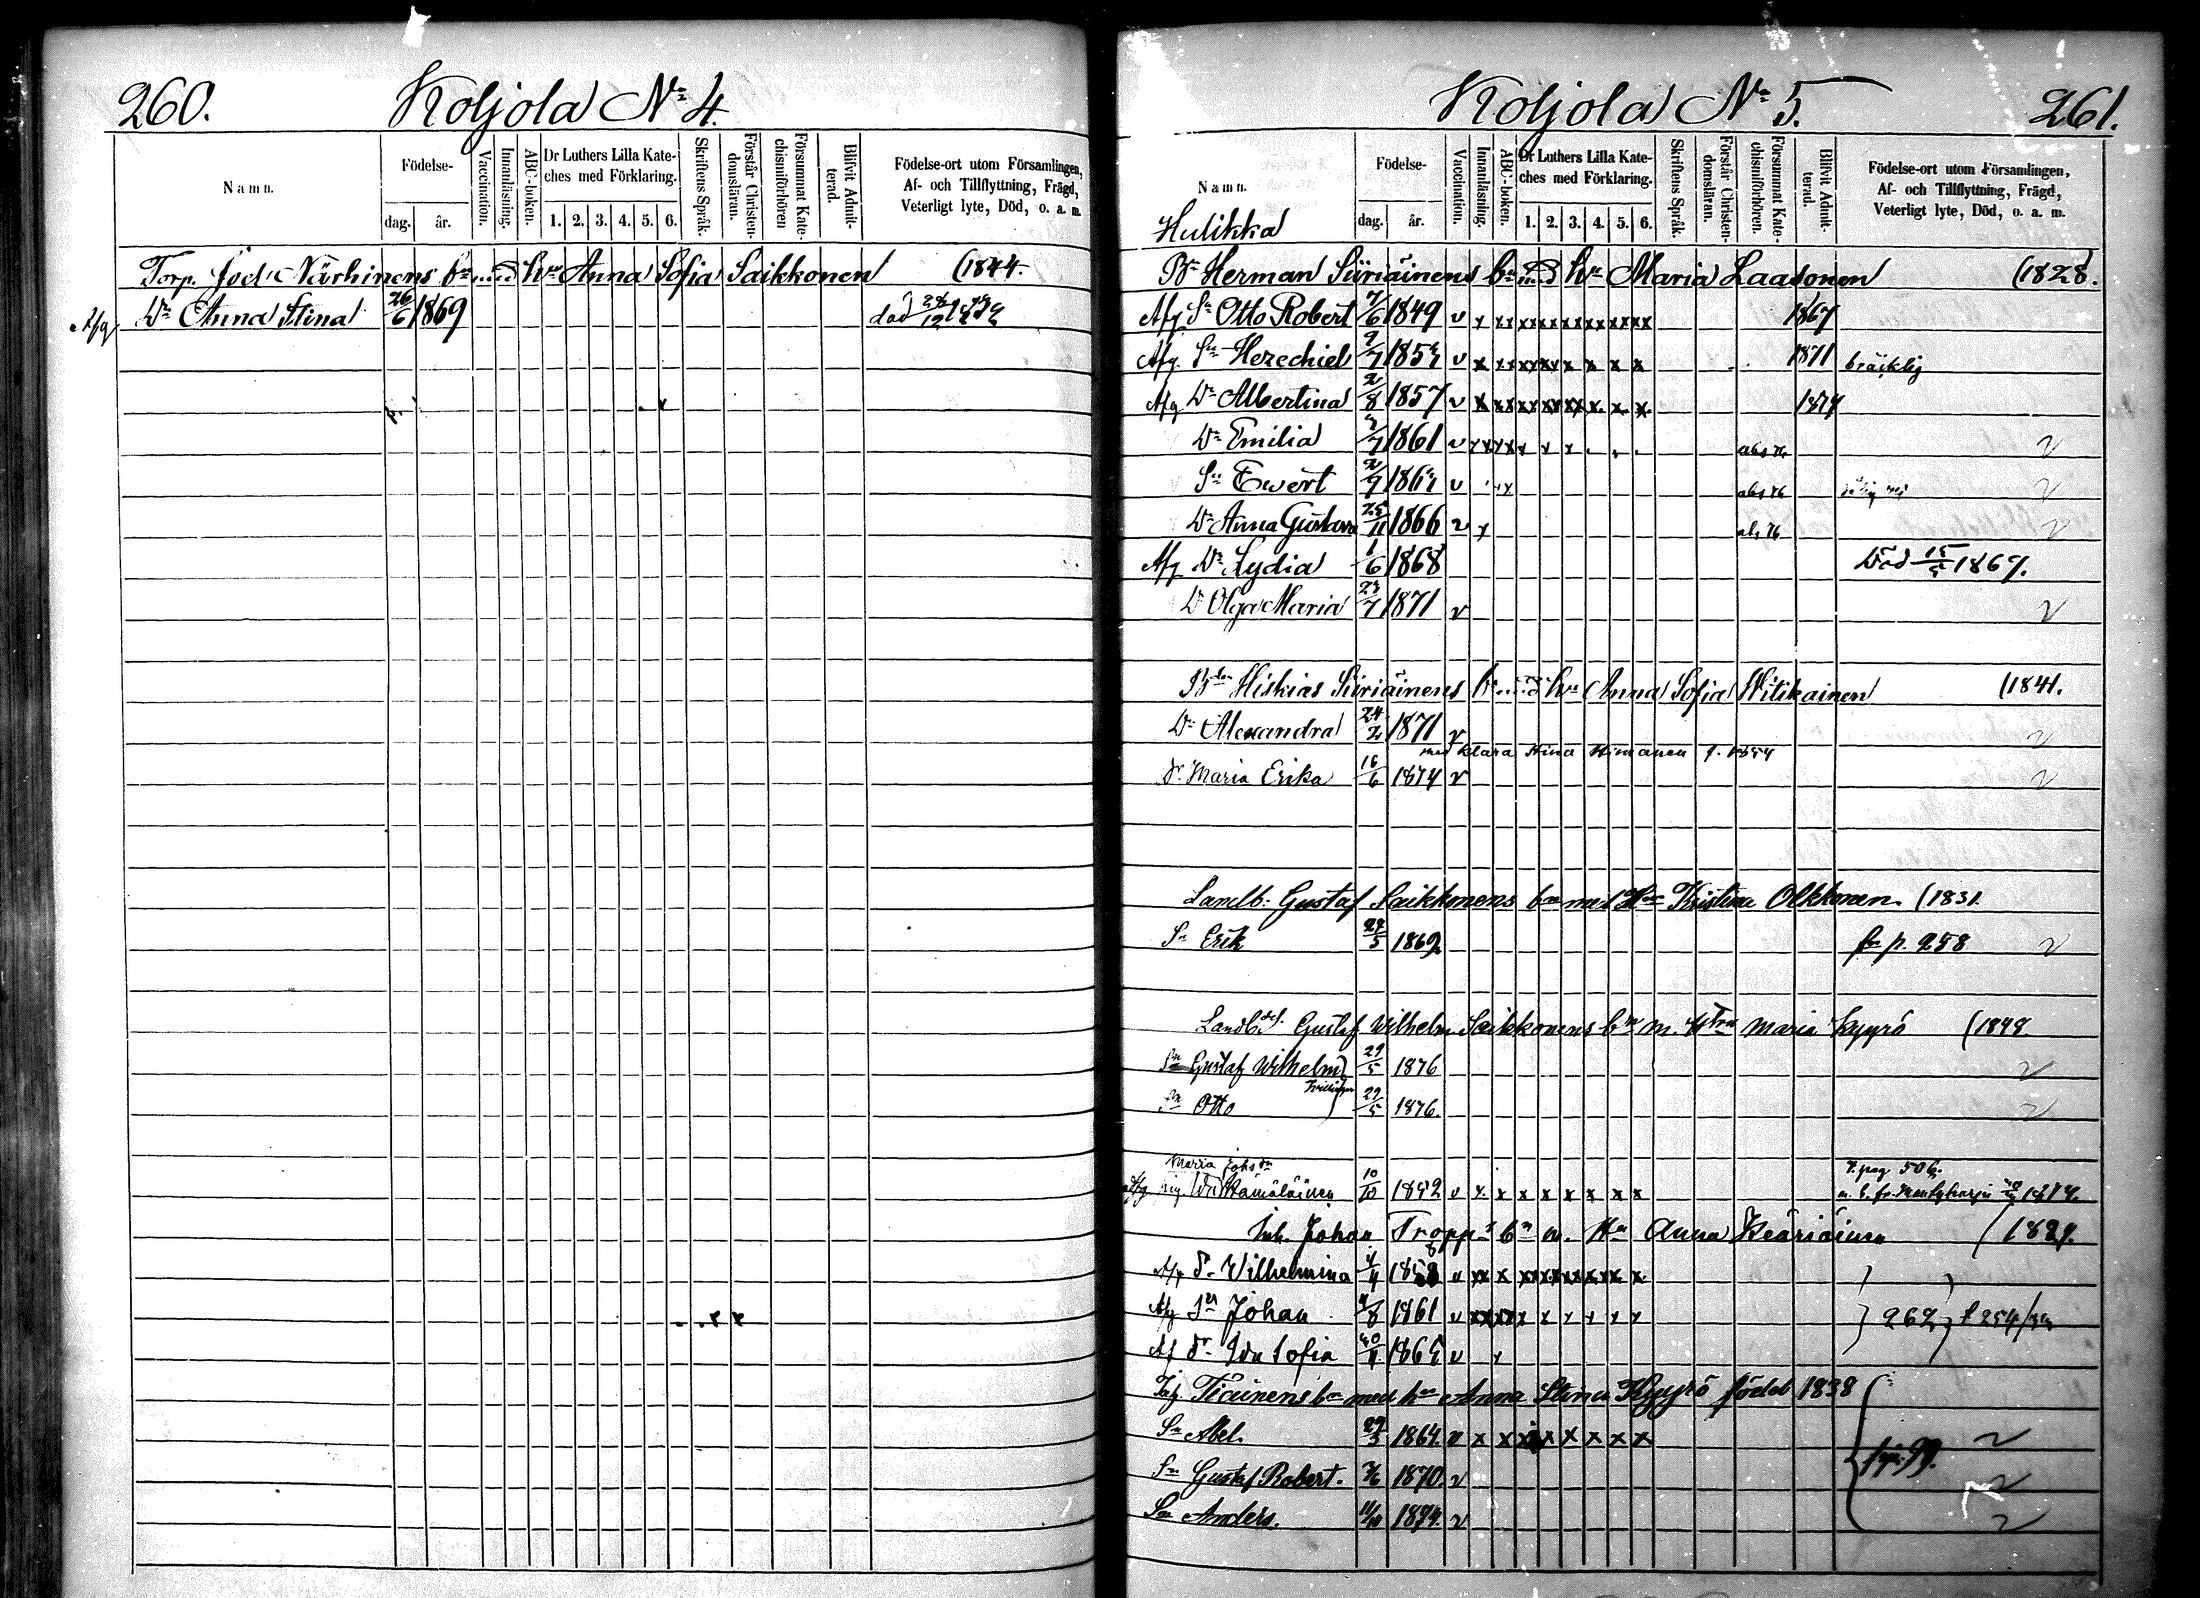 260.
Koljola No 4.
Namn.
Födelse-
dag. år.
Vaccination.
Innanläsning.
ABC-boken.
Dr Luthers Lilla Kate-
ches med Förklaring.
1. 2. 3. 4. 5. 6.
Skriftens Språk.
Förstår Christen-
domsläran.
Försummat Kate-
chismiförhören
Blifvit Admit-
terad.
Födelse-ort utom Församlingen,
Af- och Tillflyttning, Frägd,
Veterligt lyte, Död, o. a. m.
Torp. Närhinens bn med hn Anna Sofia Saikkonen (1844.
Afg Dr Anna Stina 26/6 1869 död
Koljola No 5.
261.
Namn.
Hulikka
Födelse-
dag. år.
Vaccination.
Innanläsning.
ABC-boken.
Dr Luthers Lilla Kate-
ches med Förklaring.
1. 2. 3. 4. 5. 6.
Skriftens Språk.
Förstår Christen-
domsläran.
Försummat Kate-
chismiförhören.
Blifvit Admit-
terad.
Födelse-ort utom Församlingen,
Af- och Tillflyttning, Frägd,
Veterligt lyte, Död, o. a. m.
Herman Siiriäinens bn med hn Maria Laasonen (1828.
Afg Sn Otto Robert 7/6 1849 v x xx xx xx xx xx xx xx 1867
Afg. Sn Hezechiel v x xx xx xx x x x x 1871 bräcklig
Afg Dr Albertina 2/8 1857 v x xx xx xx xx x. x. x. 1874
Dr Emilia 1861 v x xx xx x x x . . . abs 76 v
Sn Ewert v abs 76 v
Dr Anna Gustava 25/11 1866 v x abs 76 v
Afg Dr Lydia 1/6 1868 Död
Dr Olga Maria 1871 v v
Hiskias Siiriäinens bn med hn Anna Sofia Hitikainen (1841.
Dr Alexandra 1871 v v
med Klara Stina Himanen f. 1854
dr Maria Erika 16/6 1874 v v
Landb. Gustaf Saikkonens bn med Hn Kristina Olkkonen. (1831.
Sn Erik 1869 fr p. 258 v
Gustaf Wilhelm Saikkonens bn m. Hn Maria Kyyrö (1848
Sn Gustaf Wilhelm 29/5 1876 v
Sn Otto 29/5 1876. v
Maria
Afg Hämäläinen 1852 v x x x x x x x x
506.
Johan Tropps bn m. Hn Anna Keäriäinen
Afg dr Wilhelmina 1858 v xx x xx xx xx xx x
Afg Sn Johan 1861 v xx xx x x x x x x 262
Af dr Ida Sofia v x
Tiainens bn med hn Anna Stina Kyyrö född 1838
Sn Abel. 1864. v x x x x x x x v
Sn Gustaf Robert. 1870. v 99. v
Sn Anders. 1874. v v